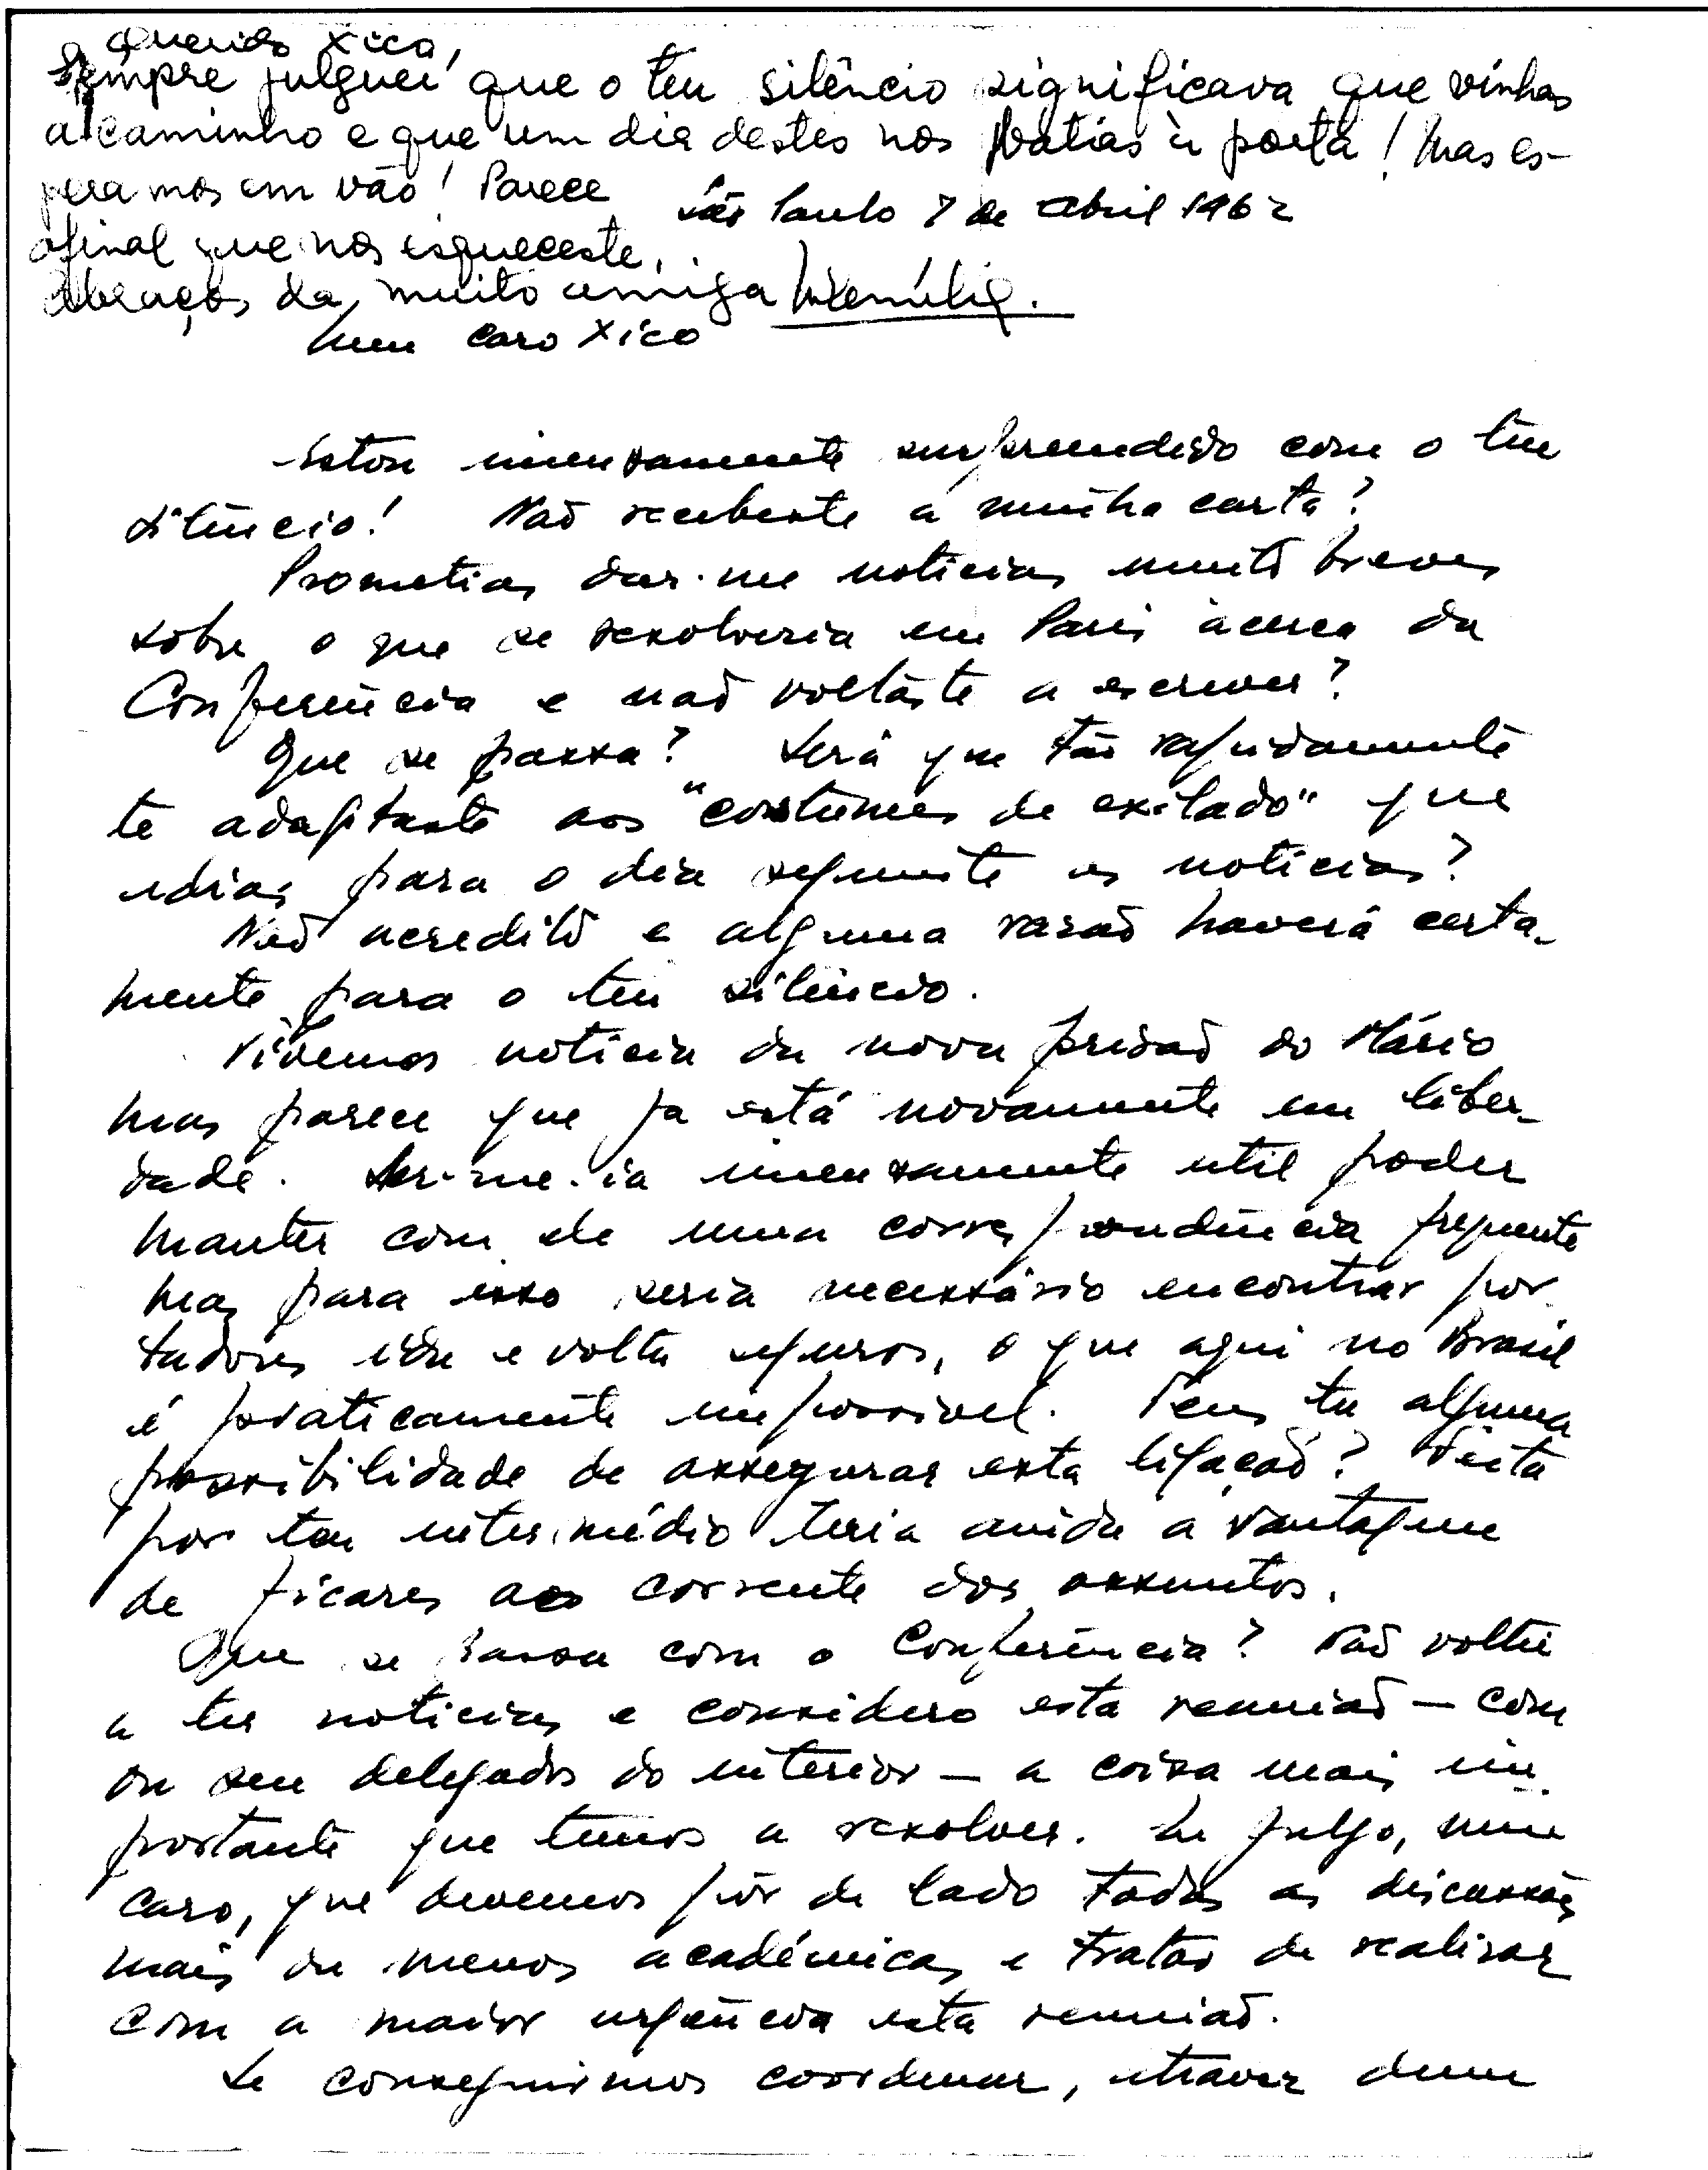 Querido Xico,
Sempre julguei que o teu silêncio significava que vinhas
a caminho e que um dia destes nos batias à porta! Mas es-
peramos em vão! Parece
São Paulo 7 de Abril 1962
afinal que nos esqueceste.
Abraços da muito amiga
Meu caro Xico
Estou imensamente surpreendido com o teu
silêncio! Naõ recebeste a minha carta?
Prometias dar-me noticias muito breves
sobre o que se resolveria em Paris àcerca da
Conferência e naõ voltáste a escrever?
Que se passa? Será que tão rapidamente
te adaptaste aos "costumes de exilado" que
adias para o dia seguinte as noticias?
Naõ acredito e alguma rasaõ haverá certa-
mente para o teu silêncio.
Tivemos noticia da nova prisaõ do Mário
mas parece que ja está novamente em liber-
dade. Ser-me-ia imensamente util poder
manter com ele uma correspondência frequente
mas para isso seria necessário encontrar por-
tadores ida e volta seguros, o que aqui no Brasil
é praticamente impossivel. Tens tu alguma
possibilidade de assegurar esta ligaçaõ? Feita
por teu intermédio teria ainda a vantagem
de ficares ao corrente dos assuntos.
Que se passa com a Conferência? Naõ voltei
a ter noticias e considero esta reuniaõ — com
ou sem delegados do interior — a coisa mais im-
portante que temos a resolver. Eu julgo, meu
caro, que devemos pôr de lado todas as discussões
mais ou menos académicas e tratar de realisar
com a maior urgência esta reuniaõ.
Se conseguirmos coordenar, atravez dum